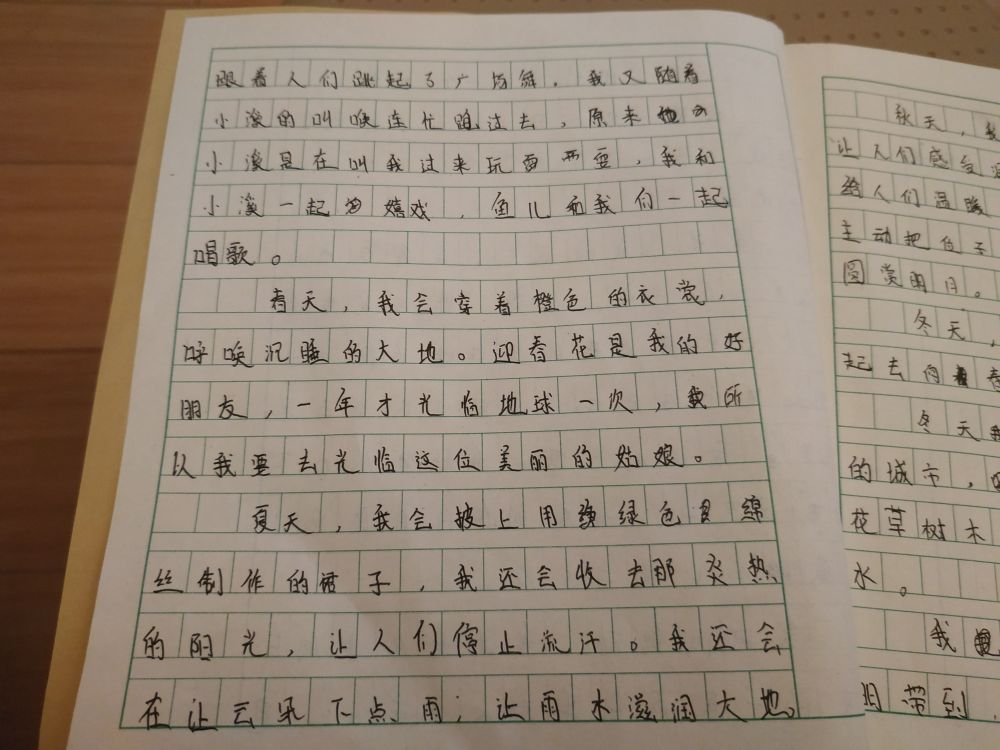 跟着人们跳起了广场舞，我又随着
小溪的叫唤连忙跑过去，原来
小溪是在叫我过来玩耍，我和
小溪一起嬉戏，鱼儿和我们一起
唱歌。
春天，我会穿着橙色的衣裳，
呼唤沉睡的大地。迎春花是我的好
朋友，一年才光临地球一次，所
以我要去光临这位美丽的姑娘。
夏天，我会披上用绿色绵
丝制作的裙子，我还会收去那炎热
的阳光，让人们停止流汗。我还会
在让云朵下点雨，让雨水滋润大地。
秋天，我
让人们感受
给人们温暖
主动把位子
圆赏明月。
冬天，
起去向春
冬天我
的城市，
花草树木
水。
我
带到